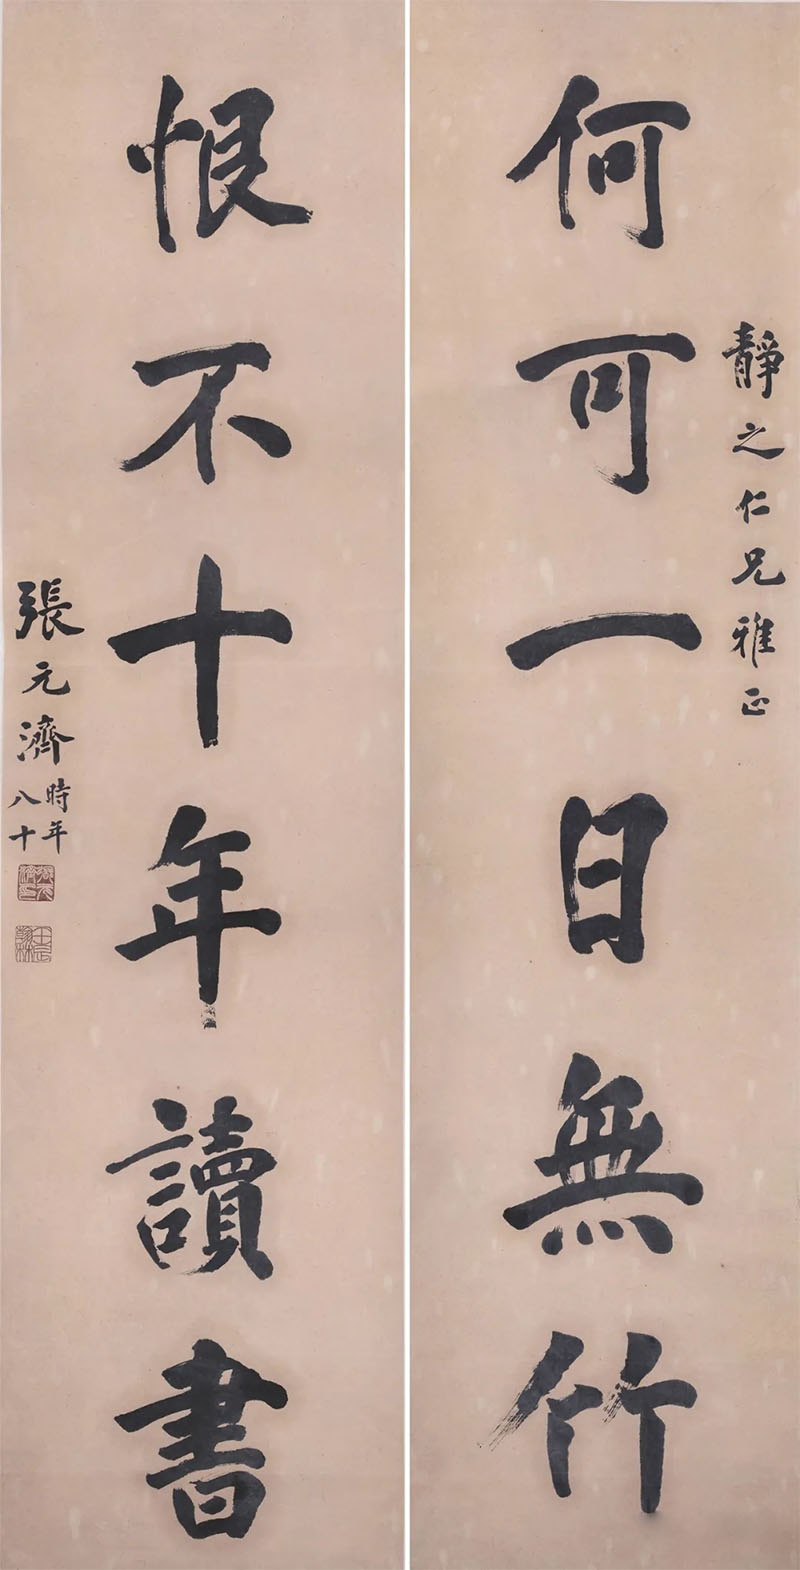 靜之仁兄雅正
何可一日無竹
恨不十年讀書
張元濟時年八十